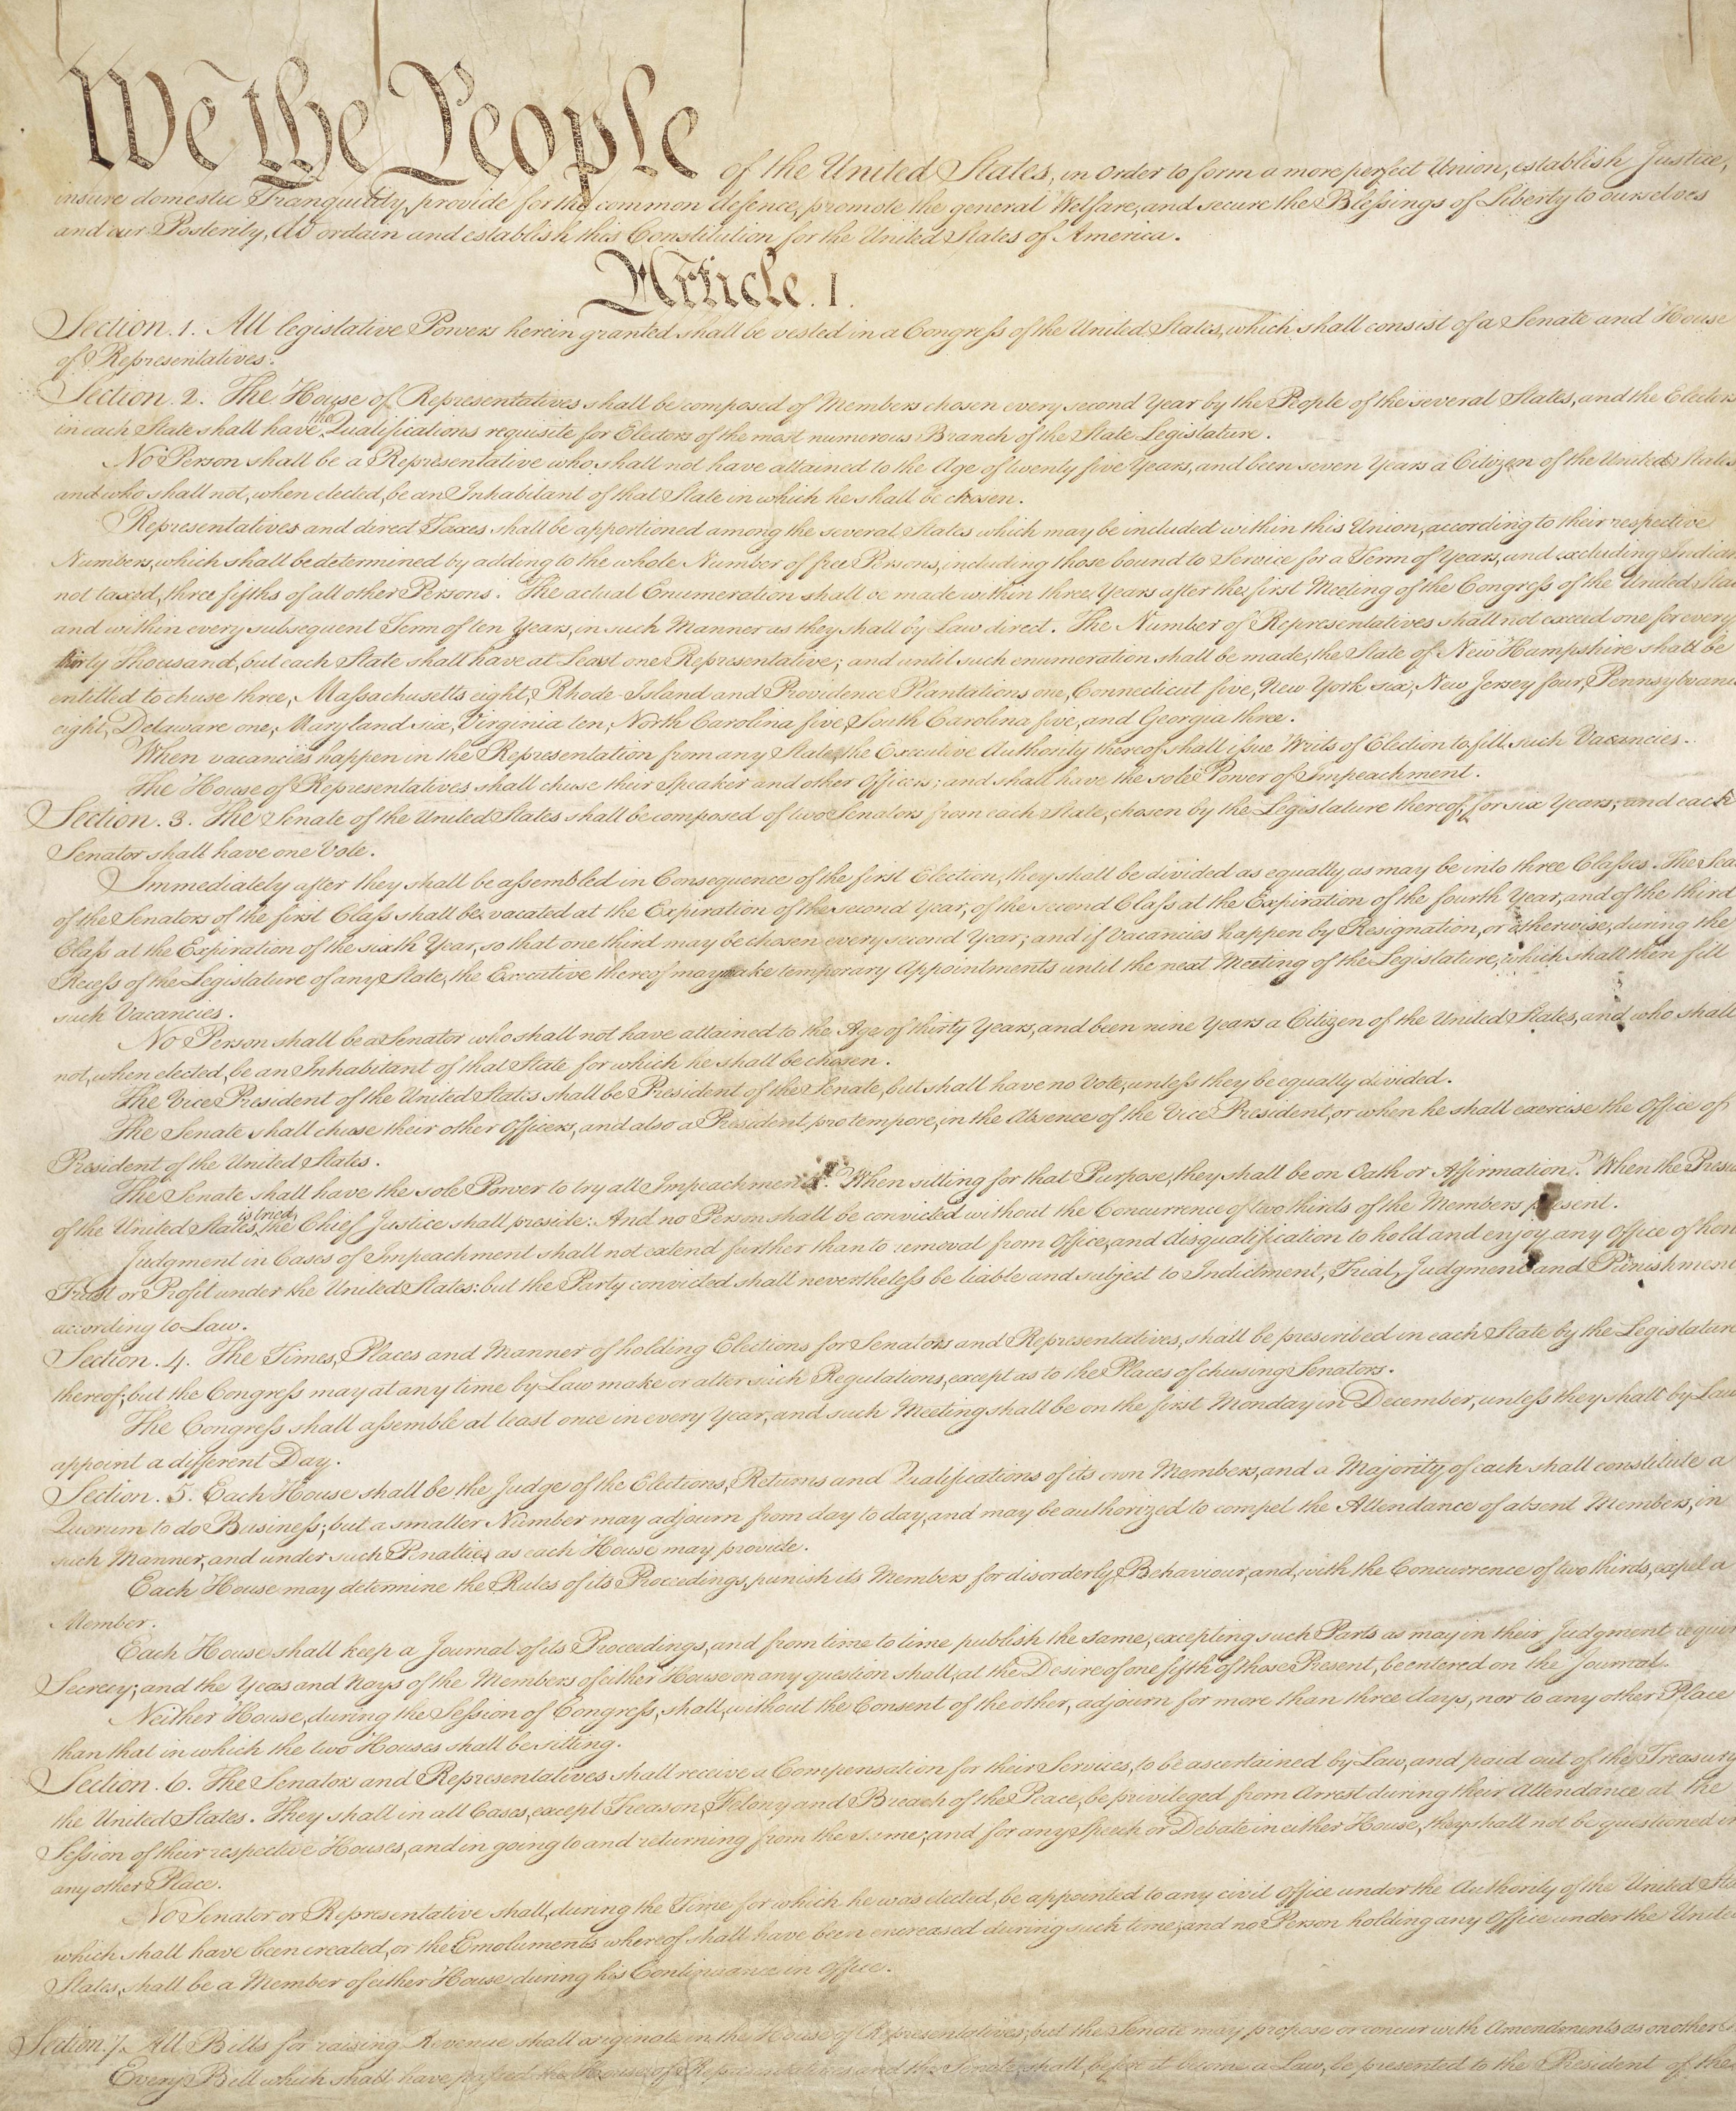 We the People of the United States, in Order to form a more perfect Union, establish Justice,
insure domestic Tranquility, provide for the common defence, promote the general Welfare, and secure the Blessings of Liberty to ourselves
and our Posterity, do ordain and establish this Constitution for the United States of America.
Article. I.
Section. 1. All legislative Powers herein granted shall be vested in a Congress of the United States, which shall consist of a Senate and House
of Representatives.
Section. 2. The House of Representatives shall be composed of Members chosen every second Year by the People of the several States, and the Electors
in each State shall have the Qualifications requisite for Electors of the most numerous Branch of the State Legislature.
No Person shall be a Representative who shall not have attained to the Age of twenty five Years, and been seven Years a Citizen of the United States,
and who shall not, when elected, be an Inhabitant of that State in which he shall be chosen.
Representatives and direct Taxes shall be apportioned among the several States which may be included within this Union, according to their respective
Numbers, which shall be determined by adding to the whole Number of free Persons, including those bound to Service for a Term of Years, and excluding Indian
not taxed, three fifths of all other Persons. The actual Enumeration shall be made within three Years after the first Meeting of the Congress of the United Sta
and within every subsequent Term of ten Years, in such Manner as they shall by Law direct. The Number of Representatives shall not exceed one for every
thirty Thousand, but each State shall have at Least one Representative; and until such enumeration shall be made, the State of New Hampshire shall be
entitled to chuse three, Massachusetts eight, Rhode-Island and Providence Plantations one, Connecticut five, New-York six, New Jersey four, Pennsylvani
eight, Delaware one, Maryland six, Virginia ten, North Carolina five, South Carolina five, and Georgia three.
When vacancies happen in the Representation from any State, the Executive Authority thereof shall issue Writs of Election to fill such Vacancies.
The House of Representatives shall chuse their Speaker and other Officers; and shall have the sole Power of Impeachment.
Section. 3. The Senate of the United States shall be composed of two Senators from each State, chosen by the Legislature thereof, for six Years; and each
Senator shall have one Vote.
Immediately after they shall be assembled in Consequence of the first Election, they shall be divided as equally as may be into three Classes. The Sea
of the Senators of the first Class shall be vacated at the Expiration of the second Year, of the second Class at the Expiration of the fourth Year, and of the third
Class at the Expiration of the sixth Year, so that one third may be chosen every second Year; and if Vacancies happen by Resignation, or otherwise, during the
Recess of the Legislature of any State, the Executive thereof may make temporary Appointments until the next Meeting of the Legislature, which shall then fill
such Vacancies.
No Person shall be a Senator who shall not have attained to the Age of thirty Years, and been nine Years a Citizen of the United States, and who shall
not, when elected, be an Inhabitant of that State for which he shall be chosen.
The Vice President of the United States shall be President of the Senate, but shall have no Vote, unless they be equally divided.
The Senate shall chuse their other Officers, and also a President pro tempore, in the Absence of the Vice President, or when he shall exercise the Office of
President of the United States.
The Senate shall have the sole Power to try all Impeachments. When sitting for that Purpose, they shall be on Oath or Affirmation. When the Presid
of the United States is tried, the Chief Justice shall preside: And no Person shall be convicted without the Concurrence of two thirds of the Members present.
Judgment in Cases of Impeachment shall not extend further than to removal from Office, and disqualification to hold and enjoy any Office of hon
Trust or Profit under the United States: but the Party convicted shall nevertheless be liable and subject to Indictment, Trial, Judgment and Punishment,
according to Law.
Section. 4. The Times, Places and Manner of holding Elections for Senators and Representatives, shall be prescribed in each State by the Legislature
thereof; but the Congress may at any time by Law make or alter such Regulations, except as to the Places of chusing Senators.
The Congress shall assemble at least once in every Year, and such Meeting shall be on the first Monday in December, unless they shall by Law
appoint a different Day.
Section. 5. Each House shall be the Judge of the Elections, Returns and Qualifications of its own Members, and a Majority of each shall constitute a
Quorum to do Business; but a smaller Number may adjourn from day to day, and may be authorized to compel the Attendance of absent Members, in
such Manner, and under such Penalties as each House may provide.
Each House may determine the Rules of its Proceedings, punish its Members for disorderly Behaviour, and, with the Concurrence of two thirds, expel a
Member.
Each House shall keep a Journal of its Proceedings, and from time to time publish the same, excepting such Parts as may in their Judgment requir
Secrecy; and the Yeas and Nays of the Members of either House on any question shall, at the Desire of one fifth of those Present, be entered on the Journal.
Neither House, during the Session of Congress, shall, without the Consent of the other, adjourn for more than three days, nor to any other Place
than that in which the two Houses shall be sitting.
Section. 6. The Senators and Representatives shall receive a Compensation for their Services, to be ascertained by Law, and paid out of the Treasury
the United States. They shall in all Cases, except Treason, Felony and Breach of the Peace, be privileged from Arrest during their Attendance at the
Session of their respective Houses, and in going to and returning from the same; and for any Speech or Debate in either House, they shall not be questioned in
any other Place.
No Senator or Representative shall, during the Time for which he was elected, be appointed to any civil Office under the Authority of the United Sta
which shall have been created, or the Emoluments whereof shall have been encreased during such time; and no Person holding any Office under the Unite
States, shall be a Member of either House during his Continuance in Office.
Section. 7. All Bills for raising Revenue shall originate in the House of Representatives; but the Senate may propose or concur with Amendments as on other
Every Bill which shall have passed the House of Representatives and the Senate, shall, before it become a Law, be presented to the President of the